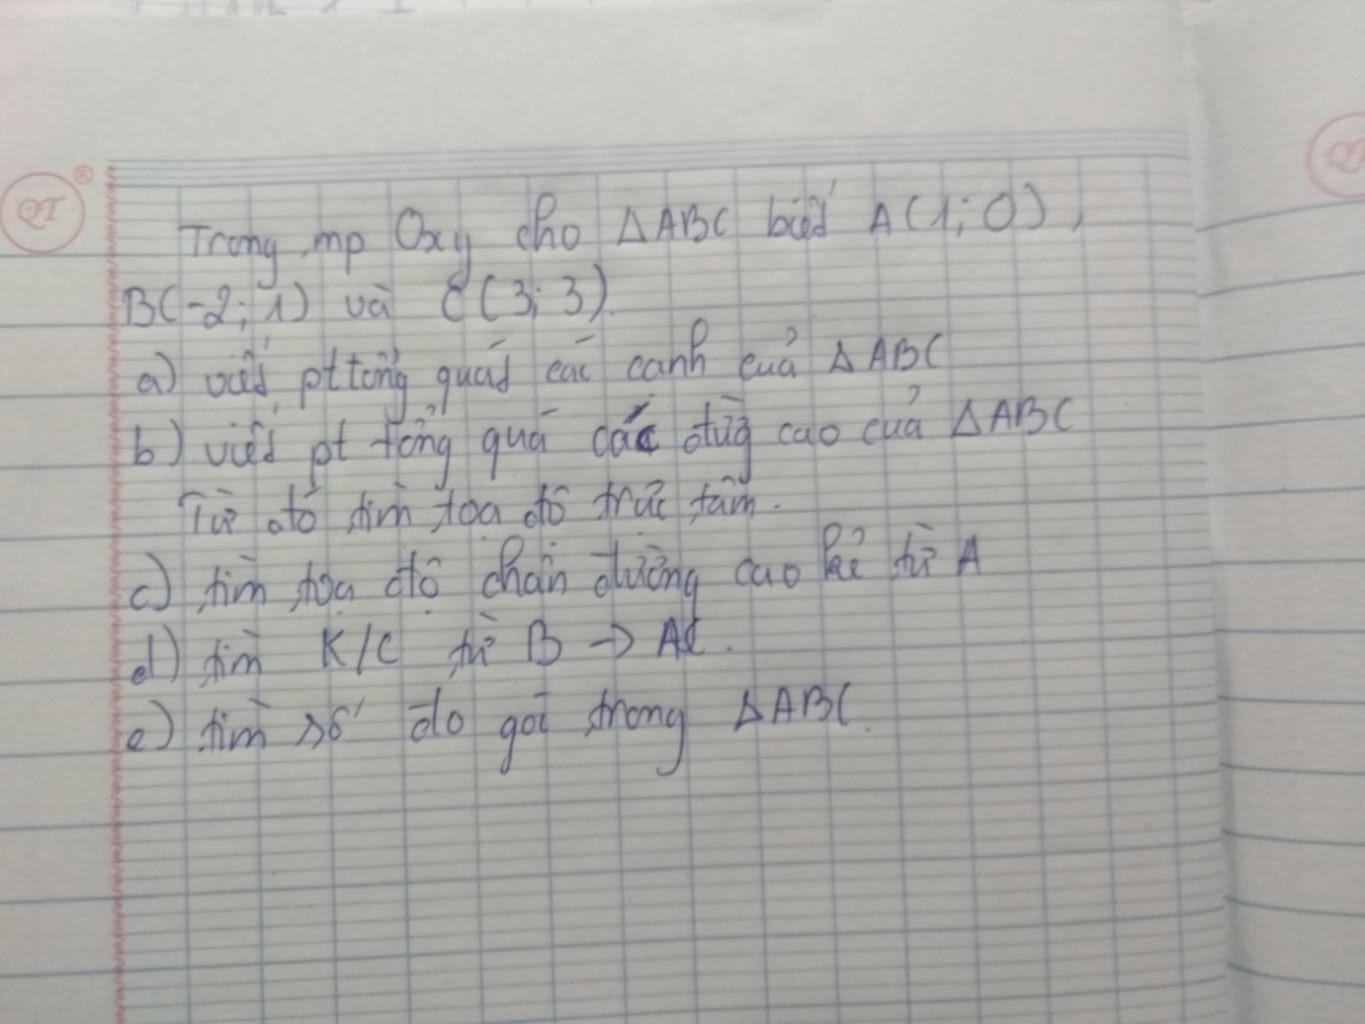 QT
Trong mp Oxy cho ΔABC biết A(1; 0),
B(-2; 1) và C(3; 3).
a) viết pt tổng quát các cạnh của ΔABC
b) viết pt tổng quá các đường cao của ΔABC
Từ đó tìm tọa độ trực tâm.
c) tìm tọa độ chân đường cao kẻ từ A
d) tìm K/C từ B → AC.
e) tìm số đo gói trong ΔABC.